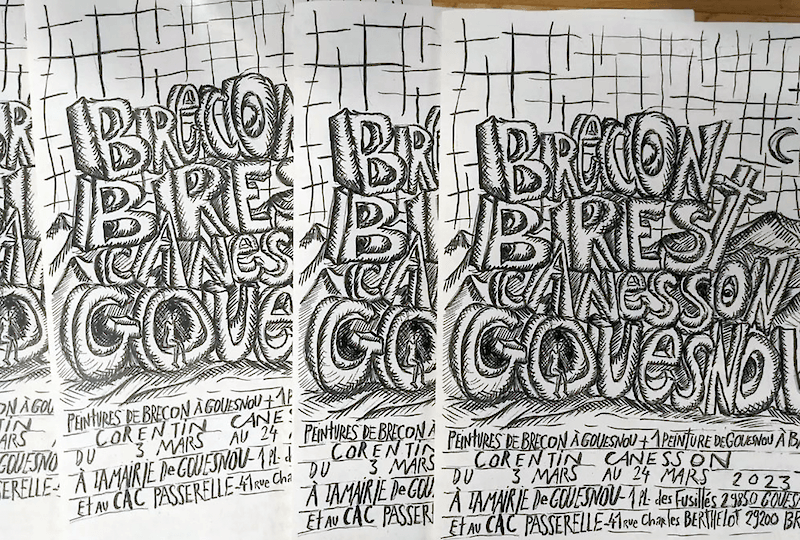 BRECON
BRES
CANES
GOUE
PEINTURES DE BRECON À GOUESNOU + 1 P
CORENTIN CANES
DU 3 MARS AU 24
À LA MAIRIE De GOUESNOU - 1 PL. d
ET AU CAC PASSERELLE - 41 rue Cha
BR
B
CA
GO
PEINTURES DE BRECON À
CORENTIN
DU 3 MARS
À LA MAIRIE De GOU
ET AU CAC PASSER
BRECON
BREST
CANESSON
GOUESNOU
PEINTURES DE BRECON À GOUESNOU + 1 PEINTURE DE GOUESNOU À B
CORENTIN CANESSON
DU 3 MARS AU 24 MARS 2023
À LA MAIRIE De GOUESNOU - 1 PL. des Fusillés 29850 GOUES
ET AU CAC PASSERELLE - 41 rue Charles BERTHELOT 29200 BR